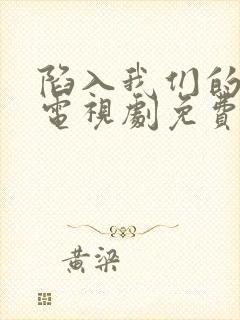 陷入我们的
電視劇免費
黄梁